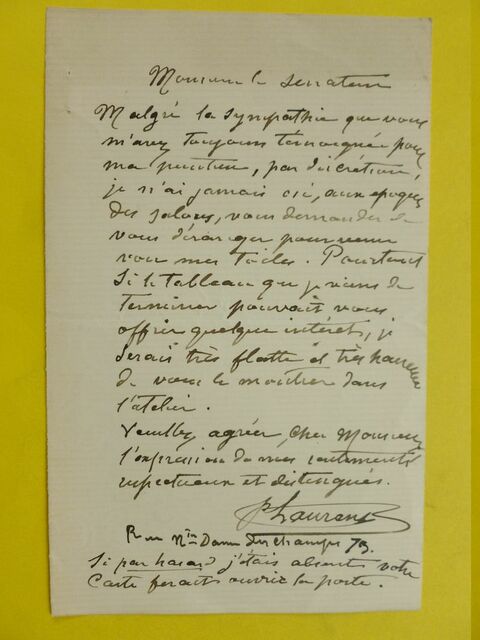 Monsieur le senateur
Malgré la sympathie que vous
m'avez toujours témoignée pour
ma peinture, par discrétion,
je n'ai jamais osé, aux époques
des salons, vous demander de
vous déranger pour venir
voir mes toiles. Pourtant
si le tableau que je viens de
terminer pouvait vous
offrir quelque intérêt, je
serais très flatté et très heureux
de vous le montrer dans
l'atelier.
Veuillez, agréer, cher Monsieur
l'expression de mes sentiments
respectueux et distingués.
JP Laurens
Rue Ntre Dame des champs 73.
Si par hasard j'étais absent votre
carte ferait ouvrir la porte.